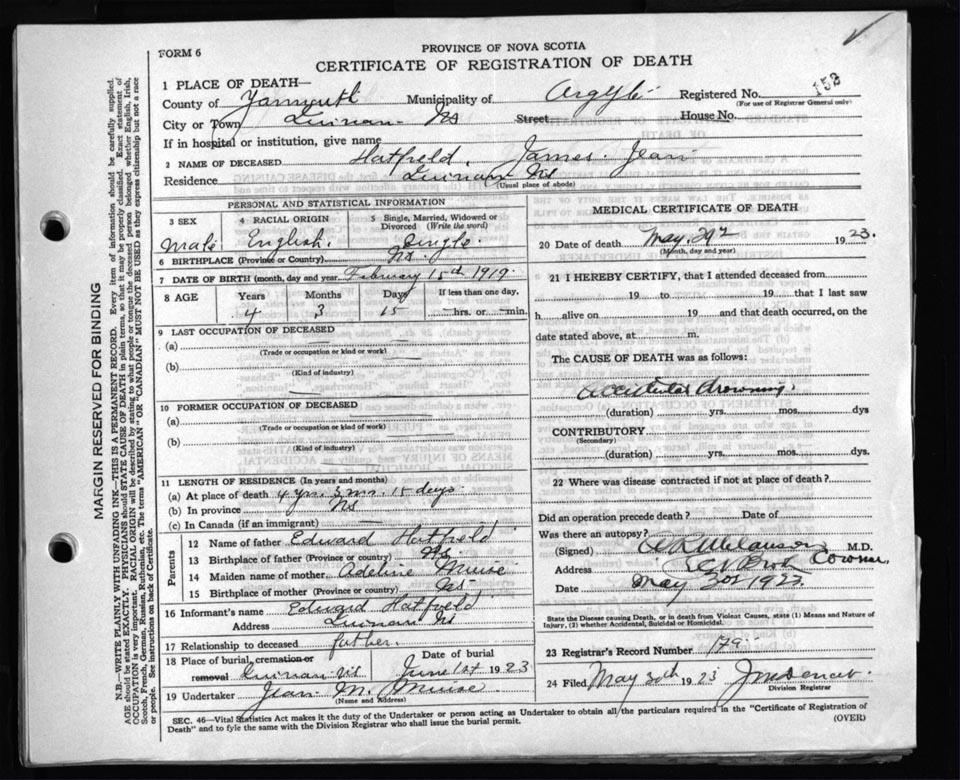 FORM 6
PROVINCE OF NOVA SCOTIA
CERTIFICATE OF REGISTRATION OF DEATH
152
1 PLACE OF DEATH—
County of Yarmouth Municipality of Argyle Registered No.
(For use of Registrar General only)
City or Town Quinan NS Street House No.
If in hospital or institution, give name
2 NAME OF DECEASED Hatfield, James Jean
Residence Quinan NS
(Usual place of abode)
PERSONAL AND STATISTICAL INFORMATION
3 SEX Male
4 RACIAL ORIGIN English.
5 Single, Married, Widowed or Divorced (Write the word) Single.
6 BIRTHPLACE (Province or Country) NS.
7 DATE OF BIRTH (month, day and year) February 15th 1919.
8 AGE Years Months Days If less than one day,
4 3 15 —hrs. or —min.
9 LAST OCCUPATION OF DECEASED
(a)
(Trade or occupation or kind or work)
(b)
(Kind of industry)
10 FORMER OCCUPATION OF DECEASED
(a)
(Trade or occupation or kind of work)
(b)
(Kind of industry)
11 LENGTH OF RESIDENCE (In years and months)
(a) At place of death 4 yrs. 3 mn. 15 days.
(b) In province NS
(c) In Canada (if an immigrant) —
Parents
12 Name of father Edward Hatfield
13 Birthplace of father (Province or country) NS.
14 Maiden name of mother Adeline Muise
15 Birthplace of mother (Province or country) NS
16 Informant's name Edward Hatfield
Address Quinan NS
17 Relationship to deceased father.
18 Place of burial, cremation or removal Quinan NS Date of burial June 1st 1923
19 Undertaker Jean M. Muise
(Name and Address)
MEDICAL CERTIFICATE OF DEATH
20 Date of death May 29 1923.
(Month, day and year)
21 I HEREBY CERTIFY, that I attended deceased from
19 to 19 that I last saw
h alive on 19 and that death occurred, on the
date stated above, at m.
The CAUSE OF DEATH was as follows:
Accidental drowning.
(duration) yrs. mos. dys
CONTRIBUTORY
(Secondary)
(duration) yrs. mos. dys.
22 Where was disease contracted if not at place of death?
Did an operation precede death? Date of
Was there an autopsy?
(Signed) M.D.
Coroner,
Address
Date May 30 1923.
State the Disease causing Death, or in death from Violent Causes, state (1) Means and Nature of
Injury, (2) whether Accidental, Suicidal or Homicidal.
23 Registrar's Record Number 179.
24 Filed May 30th 1923
Division Registrar
SEC. 46—Vital Statistics Act makes it the duty of the Undertaker or person acting as Undertaker to obtain all the particulars required in the "Certificate of Registration of
Death" and to fyle the same with the Division Registrar who shall issue the burial permit.
(OVER)
MARGIN RESERVED FOR BINDING
N.B.—WRITE PLAINLY WITH UNFADING INK—THIS IS A PERMANENT RECORD. Every item of information should be carefully supplied.
AGE should be stated EXACTLY. PHYSICIANS should STATE CAUSE OF DEATH in plain terms, so that it may be properly classified. Exact statement of
OCCUPATION is very important. RACIAL ORIGIN will be described by stating to what people or tongue the deceased person belonged, whether English, Irish,
Scotch, French, German, Russian, Ruthenian, etc. The terms "AMERICAN" OR "CANADIAN" MUST NOT BE USED as they express citizenship but not a race
or people. See instructions on back of Certificate.